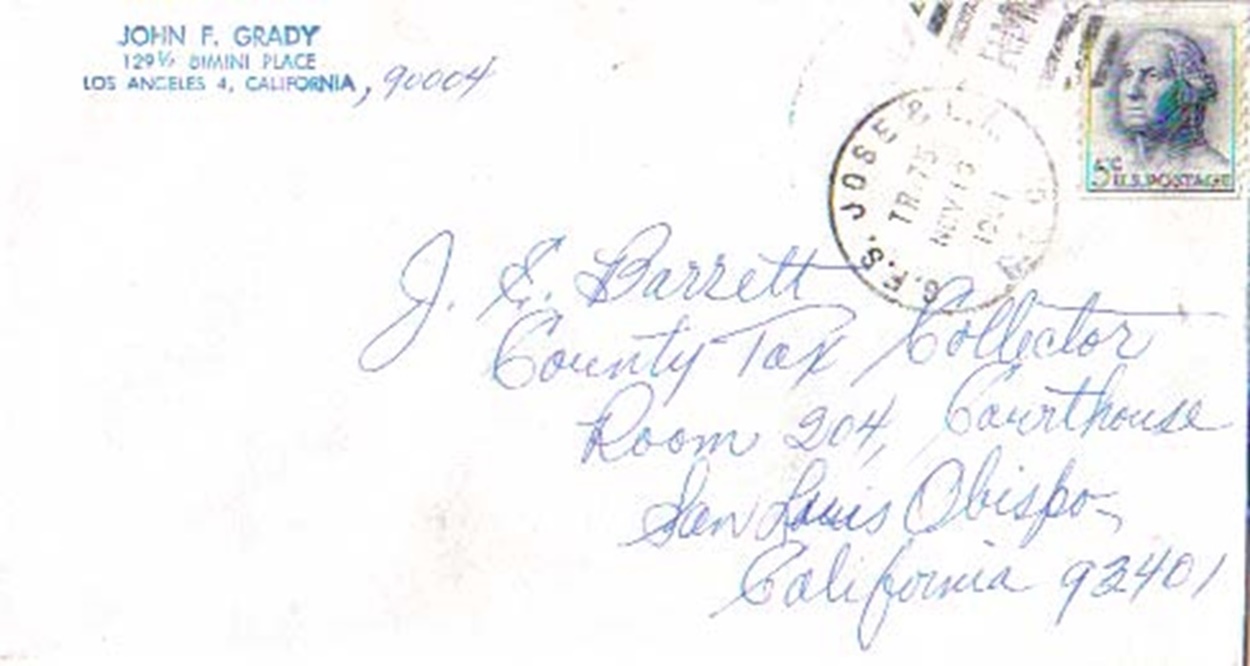 JOHN F. GRADY
129½ BIMINI PLACE
LOS ANGELES 4, CALIFORNIA, 90004
5¢
U.S. POSTAGE
JOSE
TR. 75
NOV 13
J. E. Barrett
County Tax Collector
Room 204, Courthouse
San Louis Obispo,
California 93401